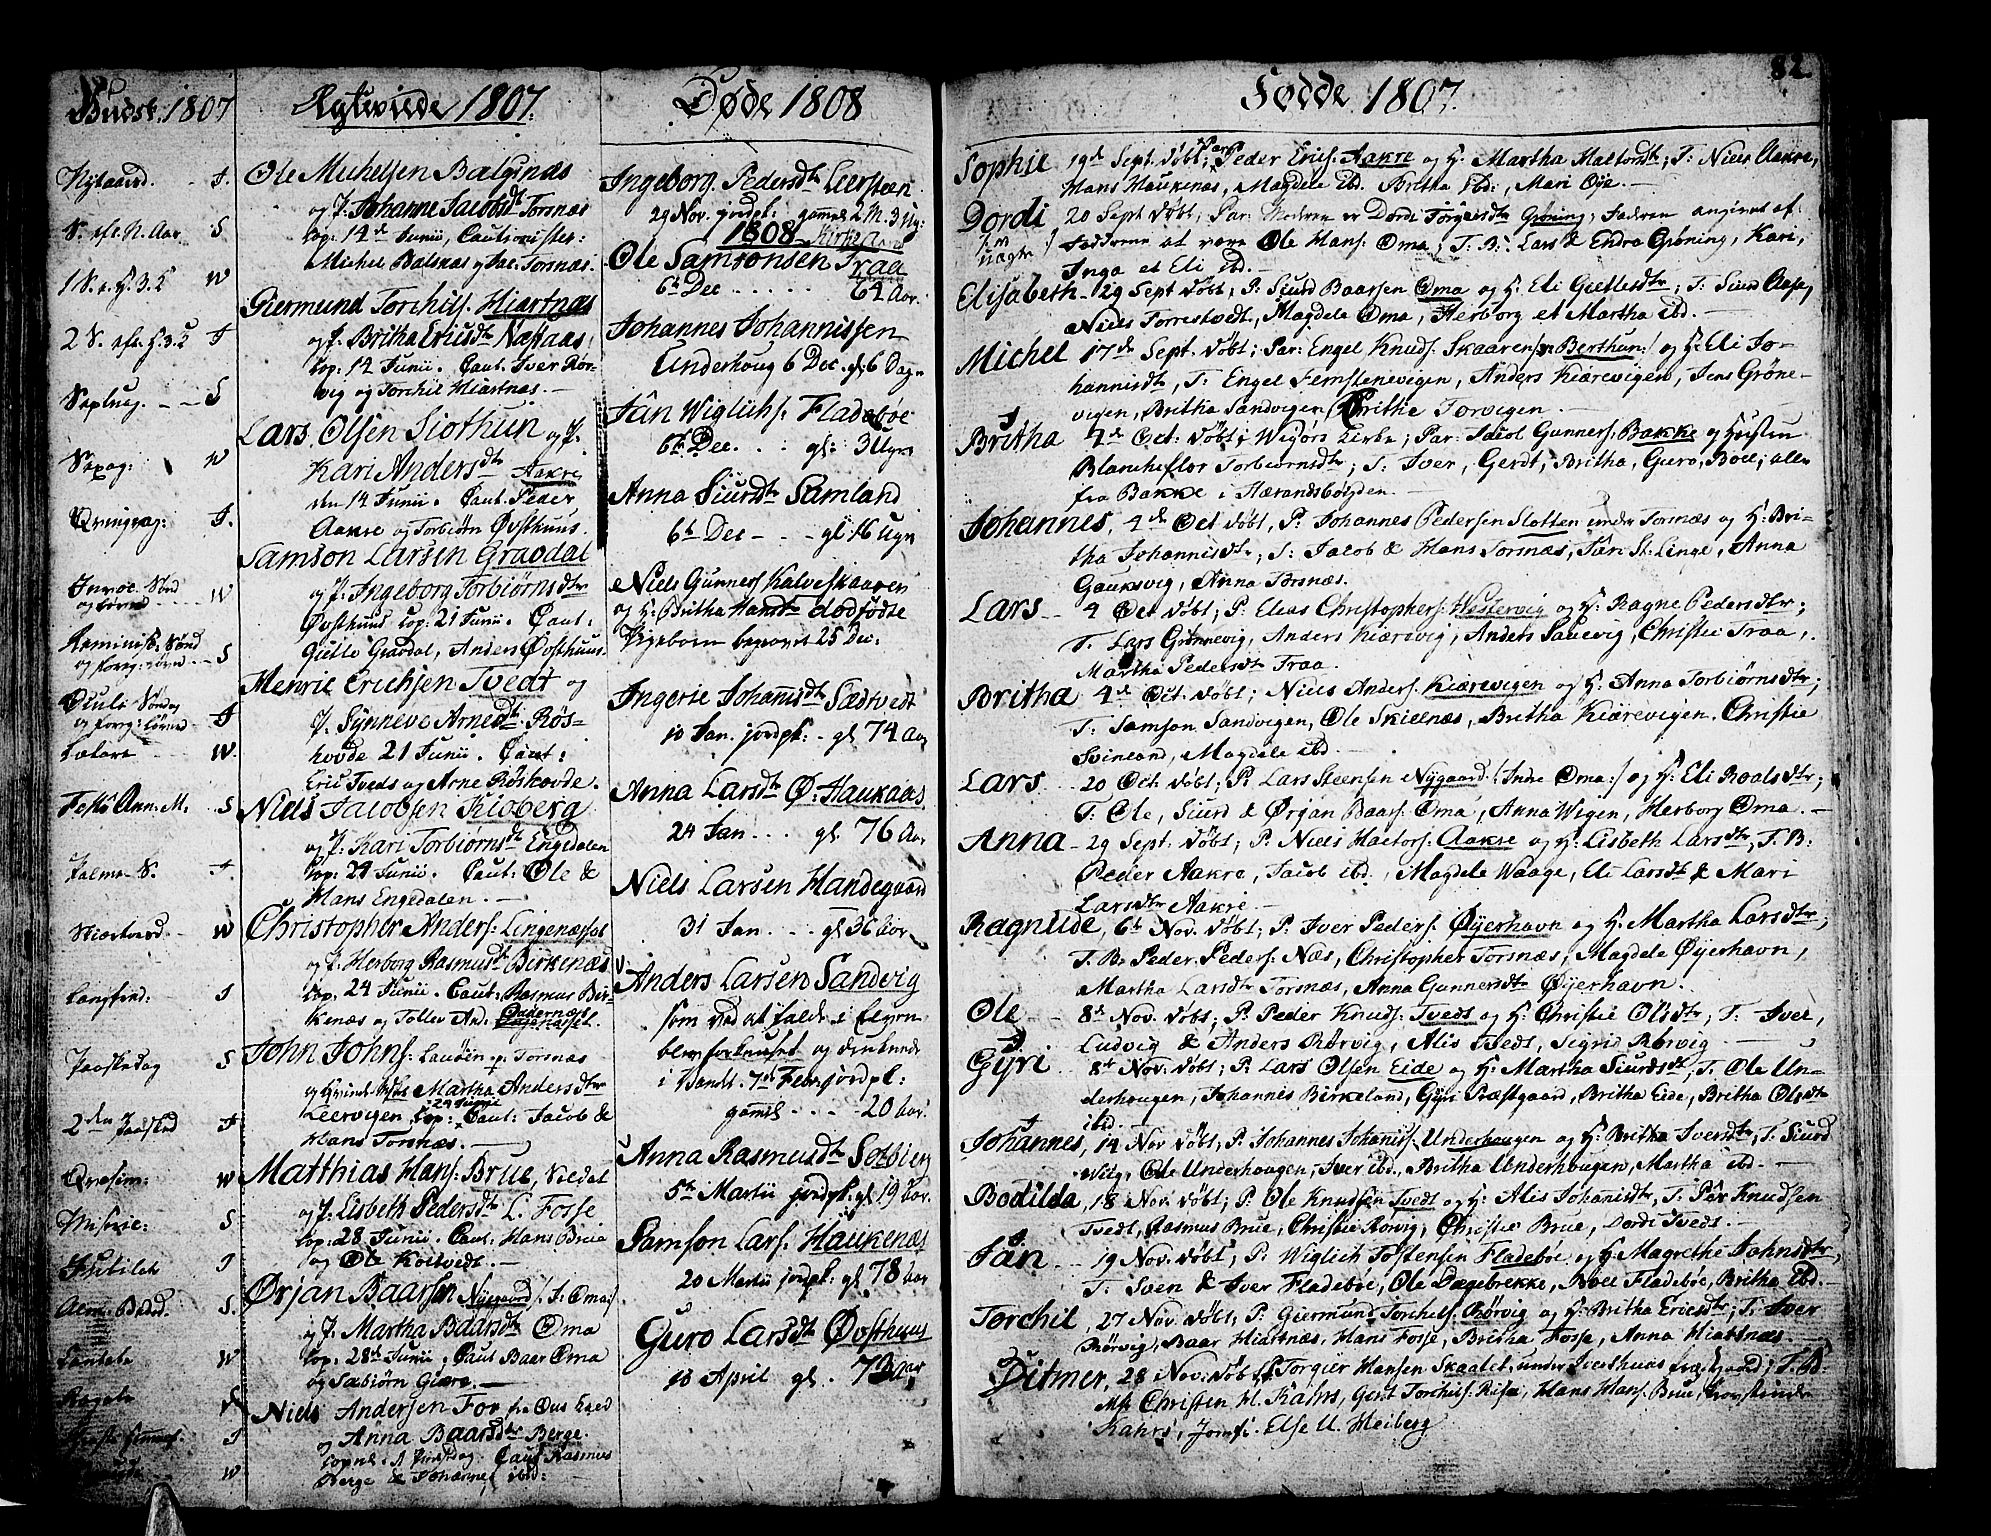 Gudst. 1807
Nytaars d. - - J.
S. eft. N. Aar S
1 S. e. H. 3. K W
2 S. eft. H. 3. K J
Septuag. - - S
Sexag: W
Qvinqvag: J.
Invoc. Sönd
og Lörvd ---- W
Reminisc. Sönd
og foreg: Lörvd -- S
Oculi Söndag
og foreg: Lörvd - J
Lætare W.
Festo Ann. M. S
Palme S. J
Skiertorsd. - W
Langfred: J
Paaskedag S
2den Paaskd J
Qvasim: W
Miseric: S
Jubilate J
Alm. Beded. S.
Cantate W
Rogate S
J
W
Ægteviede 1807.
Ole Michelsen Balsnæs
og P. Johanne Jacobsdt Torsnæs
Cop: 14de Junii, Cautionister:
Michel Balsnæs og Jac: Torsnæs.
Giermund Torchils. Hiartnæs
og P. Britha Ericsdt Naffaas,
Cop: 14 Junii. Caut. Iver Rør-
vig og Torchil Hiartnæs. —
Lars Olsen Siothun og P.
Kari Andersdtr Aakre
den 14 Junii. Caut. Peder
Aakre og Torbiørn Øvsthuus.
Samson Larsen Gravdal
og P. Ingeborg Torbiørnsdtr
Øvsthuus Cop: 21 Junii. Caut:
Gielle Gravdal, Anders Øvsthuus.
Henric Erichsen Tvedt og
P. Synneve Arnedtr Røs-
hovde 21 Junii. Caut:
Eric Tveds og Arne Røshovde.
Niels Jacobsen Kioberg
og P. Kari Torbiørnsdt Engedalen
Cop: 24 Junii. Caut: Ole &
Hans Engedalen. —
Christopher Anders: Lingenæsset
og P. Herborg Rasmusdt Birkenæs
Cop: 24 Junii. Caut: Rasmus Bir-
kenæs og Tollev And:
John Johns: Lauöen p. Torsnæs
og Qvindes Martha Andersdtr
Leervigen Cop: 24 Junii Caut: Jacob &
Hans Torsnæs. —
Matthias Hans: Brue, Viedal
og P. Lisbeth Pedersdtr L. Fosse
Cop: 28 Junii. Caut: Hans Brue
og Ole Koltvedt. —
Ørjan Baarsen Nygaard /: J. Oma:/
og P. Martha Baarsdt Oma
Cop: 28de Junii, Caut Baar Oma
og Torbiørn Giære. —
Niels Andersen For fra Ous Kied
og Anna Baarsdtr Berge.
Cop. d. Caut Rasmus
Berge & Johannes ibid:
Døde 1808
Ingeborg Pedersdt Leersteen
29 Nov. jordpk: gamel 2 M. 3 Ug:
1808 Kirke Aaret
Ole Samsonsen Traa
6te Dec - - - - 64 Aar.
Johannes Johannissen
Underhoug 6 Dec. gl: 6 Dag.
Jån Wiglichs: Fladebøe
6te Dec. - - : gl: 3 Ugr
Anna Siursdtr Samland
6te Dec - - - gl 16 Ugr
Niels Gunners Kalveskaaren
og H: Britha Hansdtr dödfödte
Pigebarn begravet 25 Dec.
Ingerie Johansdtr Sædtvedt
10 Jan. jordpk: - gl 74 Aar
Anna Larsdtr Ø: Haukaas
24 Jan. . . gl 76 Aar
Niels Larsen Handegaard
31 Jan. . . . gl 36 Aar
Anders Larsen Sandvig
som ved at falde i Elven
blev forknuset og druknede
i Vandt. 7de Febr: jordpk:
gamel - - - 20 Aar.
Anna Rasmusdtr Solbierg
5te Martii jordpk: gl 19 Aar.
Samson Lars: Haukenæs
20 Martii jordpk: gl 78 Aar
Guro Larsdt Øvsthuus
18 April gl. 73 Aar
82.
Födde 1807.
Sophie 19de Sept. Döbt; Par: Peder Erics: Aakre og H. Martha Haltorsdtr; T: Niels Aakre,
Hans Haukenæs, Magdele ibd. Britha ibd:, Mari Øye. —
Dordi 20 Sept Döbt, Par: Moderen er Dordi Torgeirsdtr Grøning, Faderen angivet af
Fadderne at være Ole Hans: Oma; T. B: Lars & Endra Grøning, Kari,
Inga et Eli ibd. —
Elisabeth - 29 Sept Döbt, P: Siurd Baarsen Oma og H. Eli Giellesdtr; T: Siurd Aase,
Niels Torrestvedt, Magdela Oma, Herborg et Martha ibd. —
Michel 17de Sept. Döbt; Par: Engel Knuds. Skaaren /: Berthun:/ og H: Eli Jo-
hannisdt, T: Engel Fernstenevigen, Anders Kiærevigen, Jens Grøne-
vigen, Britha Sandvigen, Brithe Torvigen. —
Britha 4de Oct: Döbt i Wigørs Kirke; Par: Saiol Gunners: Bakke og Hustru
Blancheflor Torbiørnsdtr; T: Iver, Gerdt, Britha, Guro, Boel; alle
fra Bakke i Hærandsbøgden. —
Johannes, 4de Oct Döbt, P: Johannes Pedersen Slotten under Torsnæs og H: Bri-
tha Johannisdtr; T: Jacob & Hans Torsnæs, Jån St. Linge, Anna
Gauksvig, Anna Torsnæs.
Lars - 4 Oct Döbt; P: Elias Christophers: Hestervig og H: Ragne Pedersdtr;
T. Lars Grønnevig, Anders Kiærevig, Anders Sauevig, Christie Traa,
Martha Pedersdtr Traa.
Britha 4de Oct. Döbt; Niels Anders: Kiærevigen og H: Anna Torbiørnsdtr;
T: Samson Sandvigen, Ole Skielnæs, Britha Kiærevigen. Christie
Svinland, Magdele ibd. —
Lars - 20 Oct. Döbt; P: Lars Steensen Nygaard /: Indre Oma:/ og H: Eli Roalsdtr;
T: Ole, Siurd & Ørjan Baars: Oma, Anna Wigen, Herborg Oma. —
Anna - 29 Sept. Döbt; P: Niels Haltors: Aakre og H: Lisbeth Larsdtr, T. B.
Peder Aakre, Jacob ibd., Magdele Waage, Eli Larsdt & Mari
Larsdtr Aakre. —
Ragnilde, 6te Nov. Döbt; P: Iver Peders: Øyerhavn og H: Martha Larsdtr;
T. B: Peder Peders: Næs, Christopher Torsnæs, Magdele Øyerhavn,
Martha Larsdtr Torsnæs, Anna Gunnersdtr Øyerhavn.
Ole - 8de Nov. Döbt; P: Peder Knuds: Tveds og H: Christie Olsdtr; T: Iver,
Ludvig & Anders Rørvig, Alis Tveds, Sigrid Rørvig. —
Gyri - 8de Nov: Döbt; P: Lars Olsen Eide og H: Martha Siursdtr; T: Ole Un-
derhougen, Johannes Birkeland, Gyri Træstgaard, Britha Eide, Britha Olsdtr
ibd. —
Johannes, 14 Nov Döbt; P: Johannes Johaniss: Underhougen og H: Britha Iversdtr, T: Siurd
Wiig, Ole Underhougen, Iver ibd., Britha Underhougen, Martha ibd. —
Bodilda, 18 Nov. Döbt; P: Ole Knudsen Tvedt og H: Alis Johanisdtr, T: Pær Knudsen
Tvedt, Rasmus Brue, Christie Rørvig, Christie Brue, Dordi Tveds. —
Jån - - 19 Nov. Döbt; P: Wiglich Tostensen Fladebøe og H: Magrethe Johnsdtr,
T: Sven & Iver Fladebøe, Ole Dægebrekke, Boel Fladebøe, Britha ibd. —
Torchil, 27 Nov. Döbt; P: Giermund Torchils: Rørvig og H: Britha Ericsdtr; T: Iver
Rørvig, Baar Hiartnæs, Hans Fosse, Britha Fosse, Anna Hiartnæs
Ditmer, 28 Nov: Döbt; P: Torgier Hansen Skaalet, under Iversthuus ; T. B.
Mr Christen M. Kahrs, Gert Torchils: Risa, Hans Hans: Brue,
Kahrs, Jomfr: Else U. Heiberg